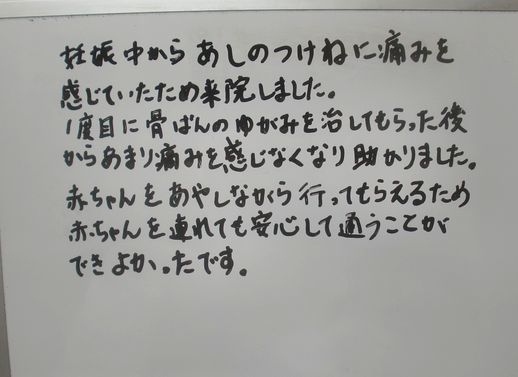 妊娠中からあしのつけねに痛みを
感じていたため来院しました。
1度目に骨ばんのゆがみを治してもらった後
からあまり痛みを感じなくなり助かりました。
赤ちゃんをあやしながら行ってもらえるため
赤ちゃんを連れても安心して通うことが
できよかったです。